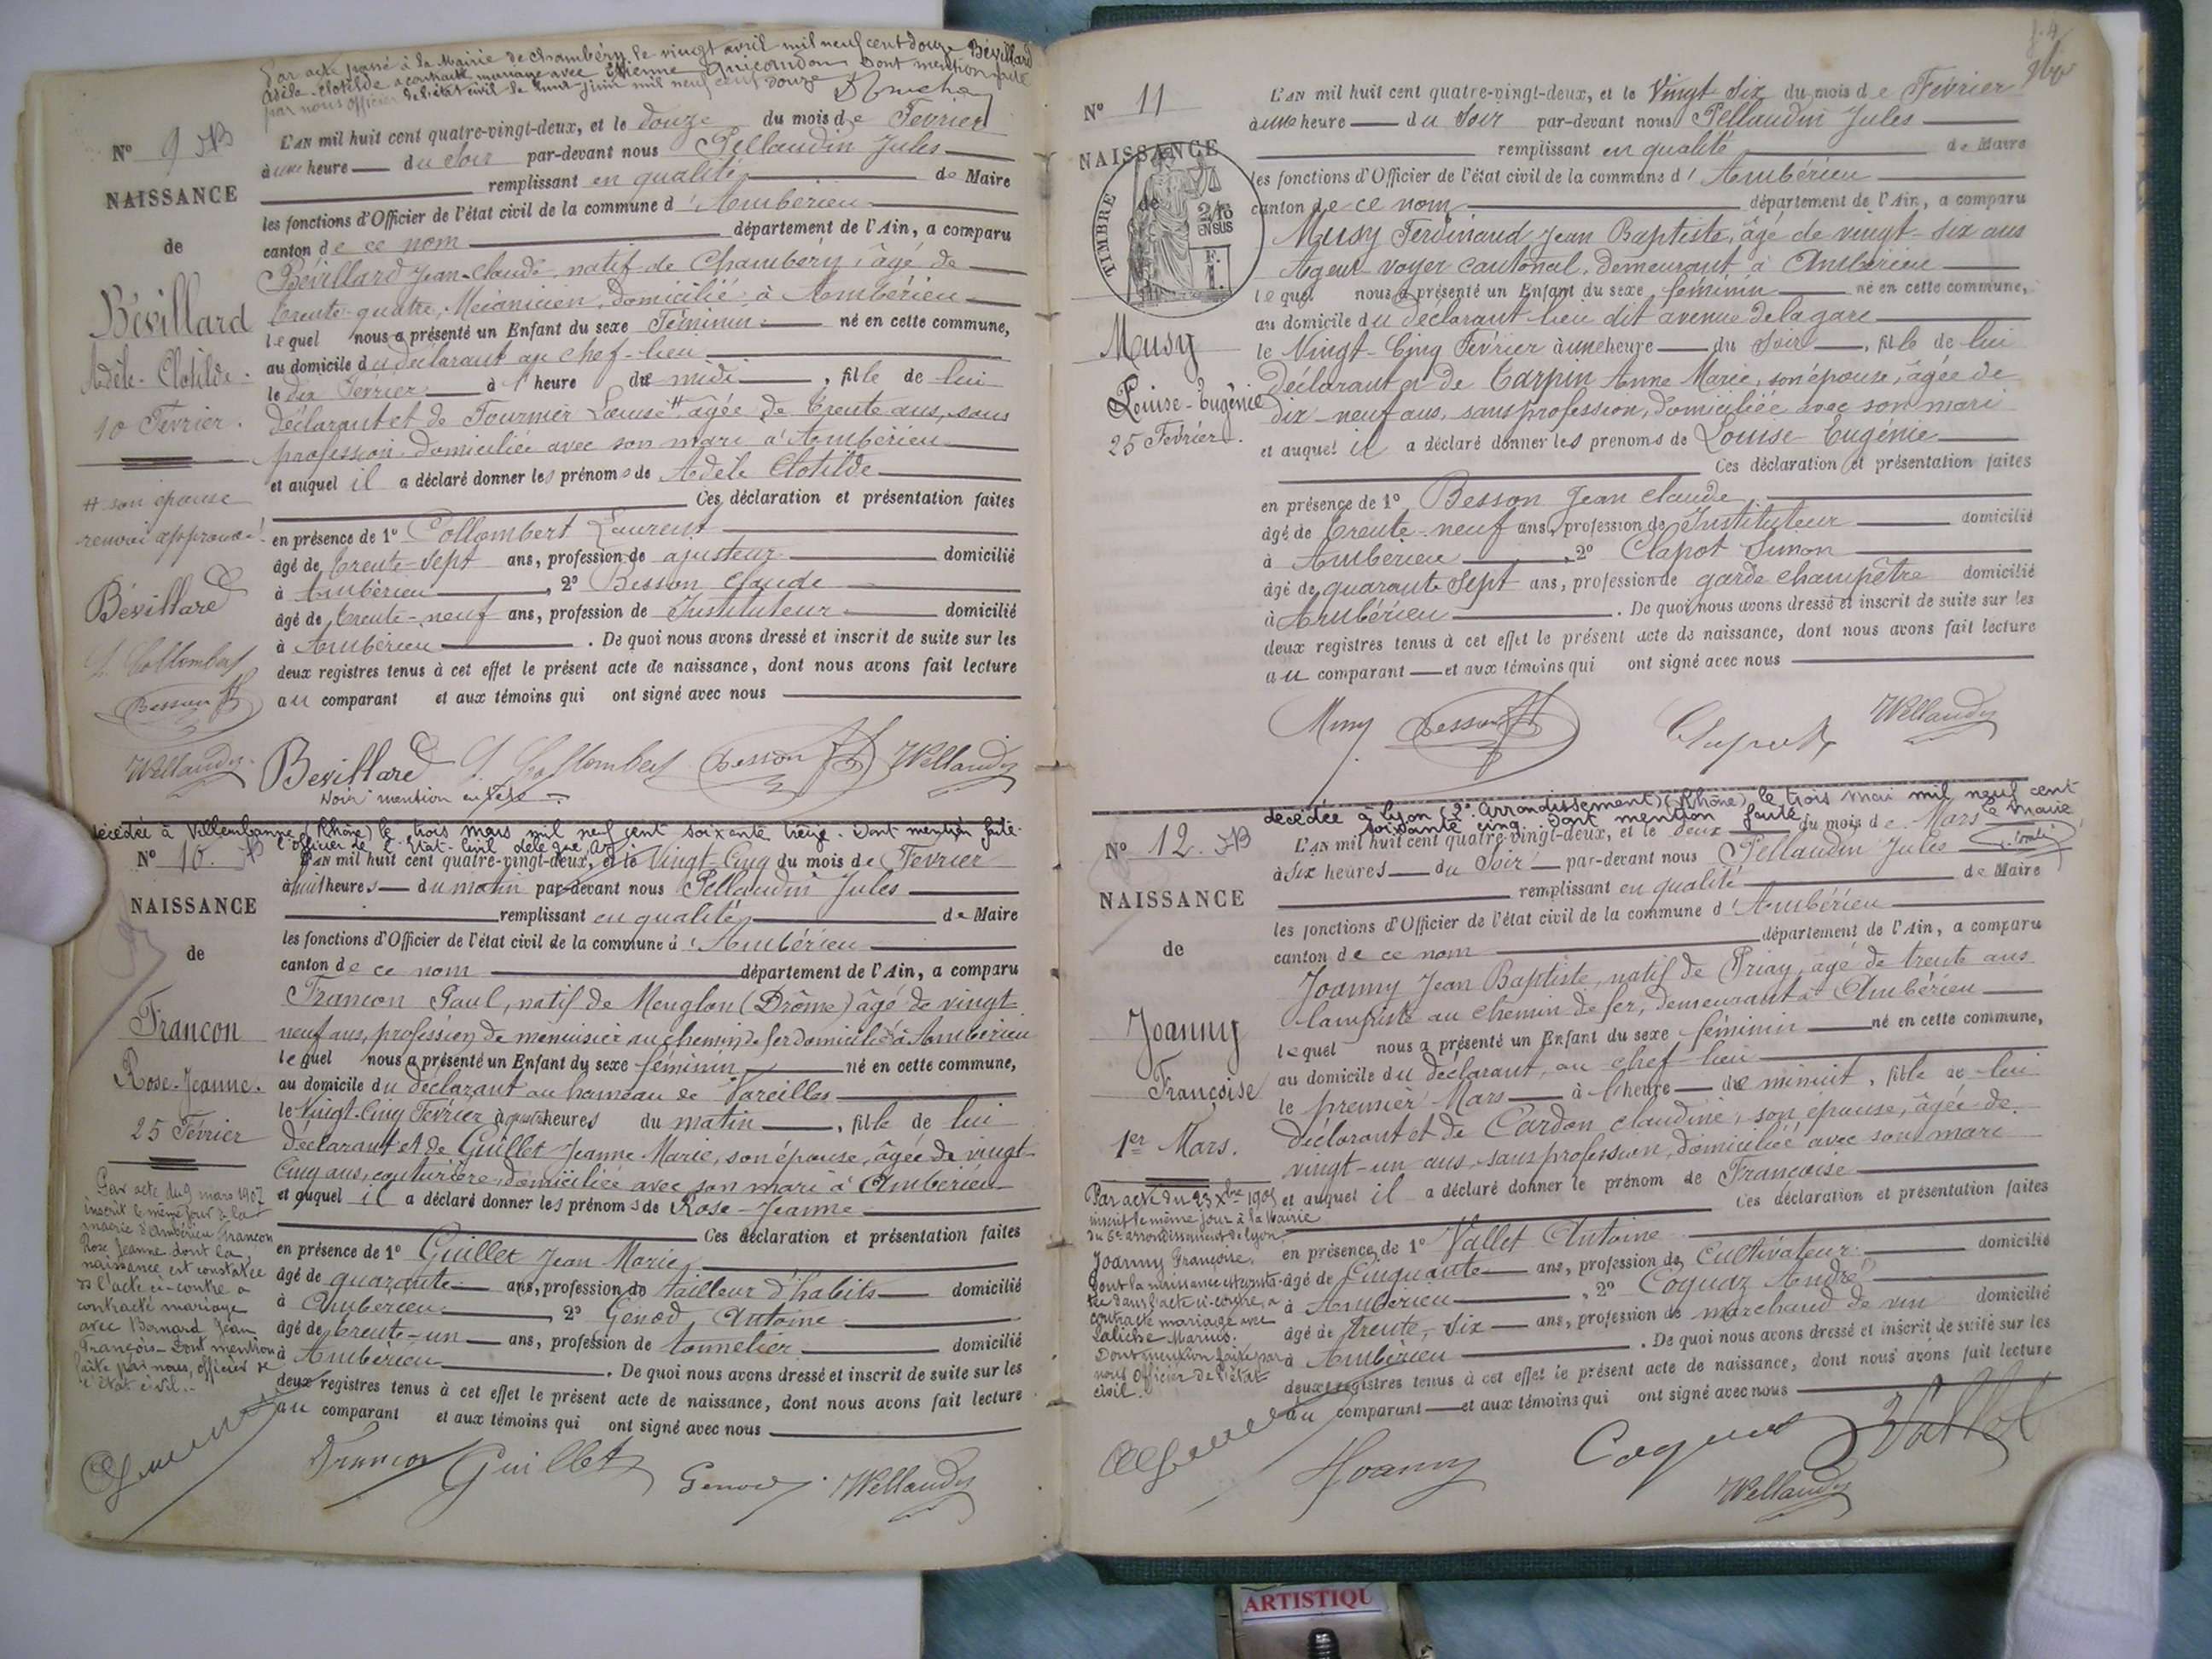 Par acte passé à la Mairie de Chambéry le vingt avril mil neuf cent douze Bévillard
Adèle-Clotilde a contracté mariage avec Etienne Dont mention faite
par nous officier de l'état civil le juin mil neuf cent douze
N° 9
NAISSANCE
de
Bévillard
Adèle-Clotilde.
10 Février.
# son épouse
renvoi approuvé
Bévillard
J. Collombert
Besson
L'AN mil huit cent quatre-vingt-deux, et le douze du mois de Février
à une heure du soir par-devant nous Pellaudin Jules
remplissant en qualité de Maire
les fonctions d'Officier de l'état civil de la commune d'Ambérieu
canton de ce nom département de l'Ain, a comparu
Bévillard Jean-Claude, natif de Chambéry, âgé de
trente-quatre, Mécanicien, domicilié à Ambérieu
lequel nous a présenté un Enfant du sexe Féminin né en cette commune,
au domicile du déclarant au chef-lieu
le dix Février à 1 heure du midi, fille de lui
Déclarant et de Fournier Louise # âgée de trente ans, sans
profession domiciliée avec son mari à Ambérieu
et auquel il a déclaré donner les prénoms de Adèle Clotilde
Ces déclaration et présentation faites
en présence de 1° Collombert Laurent
âgé de trente-sept ans, profession de ajusteur domicilié
à Ambérieu, 2° Besson Claude
âgé de trente-neuf ans, profession de Instituteur domicilié
à Ambérieu. De quoi nous avons dressé et inscrit de suite sur les
deux registres tenus à cet effet le présent acte de naissance, dont nous avons fait lecture
au comparant et aux témoins qui ont signé avec nous
Bévillard J. Collombert Besson
Voir mention en tête
décédée à Villeurbanne (Rhône) le trois mars mil neuf cent soixante treize. Dont mention faite.
l'officier de l'Etat-Civil délégué,
N° 10.
NAISSANCE
de
Francon
Rose-Jeanne.
25 Février
Par acte du 9 mars 1907
inscrit le même jour à la
mairie d'Ambérieu Francon
Rose Jeanne dont la
naissance est constatée
ds l'acte ci-contre a
contracté mariage
avec Bernard Jean
François - Dont mention
faite par nous, officier de
l'état civil.
L'AN mil huit cent quatre-vingt-deux, et le Vingt-Cinq du mois de Février
à huit heures du matin par-devant nous Pellaudin Jules
remplissant en qualité de Maire
les fonctions d'Officier de l'état civil de la commune d'Ambérieu
canton de ce nom département de l'Ain, a comparu
Francon Paul, natif de Menglon (Drôme) âgé de vingt-
neuf ans, profession de menuisier au chemin de fer domicilié à Ambérieu
lequel nous a présenté un Enfant du sexe féminin né en cette commune,
au domicile du déclarant au hameau de Vareilles
le Vingt-Cinq Février à quatre heures du matin, fille de lui
déclarant et de Guillet Jeanne Marie, son épouse, âgée de vingt-
Cinq ans, couturière, domiciliée avec son mari à Ambérieu
et auquel il a déclaré donner les prénoms de Rose-Jeanne
Ces déclaration et présentation faites
en présence de 1° Guillet Jean Marie
âgé de quarante ans, profession de tailleur d'habits domicilié
à Ambérieu 2° Genod Antoine
âgé de trente-un ans, profession de tonnelier domicilié
à Ambérieu. De quoi nous avons dressé et inscrit de suite sur les
deux registres tenus à cet effet le présent acte de naissance, dont nous avons fait lecture
au comparant et aux témoins qui ont signé avec nous
Francon Guillet Genod
N° 11
NAISSANCE
de
TIMBRE
2/10
EN SUS
F.
1.
Musy
Louise-Eugénie
25 Février.
L'AN mil huit cent quatre-vingt-deux, et le Vingt Six du mois de Février
à une heure du soir par-devant nous Pellaudin Jules
remplissant en qualité de Maire
les fonctions d'Officier de l'état civil de la commune d'Ambérieu
canton de ce nom département de l'Ain, a comparu
Musy Ferdinand Jean Baptiste, âgé de vingt-six ans
Agent voyer cantonal, demeurant à Ambérieu
lequel nous a présenté un Enfant du sexe féminin né en cette commune,
au domicile du déclarant lieu dit avenue de la gare
le Vingt-Cinq Février à une heure du soir, fille de lui
Déclarant et de Carpin Anne Marie, son épouse, âgée de
dix-neuf ans, sans profession, domiciliée avec son mari
et auquel il a déclaré donner les prénoms de Louise-Eugénie
Ces déclaration et présentation faites
en présence de 1° Besson Jean Claude
âgé de trente-neuf ans, profession de Instituteur domicilié
à Ambérieu, 2° Clapot Simon
âgé de quarante sept ans, profession de garde champêtre domicilié
à Ambérieu. De quoi nous avons dressé et inscrit de suite sur les
deux registres tenus à cet effet le présent acte de naissance, dont nous avons fait lecture
au comparant et aux témoins qui ont signé avec nous
Musy Besson Clapot
décédée à Lyon (2e arrondissement) (Rhône) le trois mai mil neuf cent
soixante cinq. Dont mention faite le Maire
N° 12.
NAISSANCE
de
Joanny
Françoise
1er Mars.
Par acte du 23 Xbre 1905
inscrit le même jour à la Mairie
du 6e arrondissement de Lyon
Joanny Françoise,
dont la naissance est consta-
tée dans l'acte ci-contre, a
contracté mariage avec
Laliche Marius.
Dont mention faite par
nous Officier de l'état
civil.
L'AN mil huit cent quatre-vingt-deux, et le deux du mois de Mars
à six heures du soir par-devant nous Pellaudin Jules
remplissant en qualité de Maire
les fonctions d'Officier de l'état civil de la commune d'Ambérieu
canton de ce nom département de l'Ain, a comparu
Joanny Jean Baptiste, natif de Priay, âgé de trente ans
lampiste au chemin de fer, demeurant à Ambérieu
lequel nous a présenté un Enfant du sexe féminin né en cette commune,
au domicile du déclarant, au chef-lieu
le premier Mars à 1 heure de minuit, fille de lui
déclarant et de Cardon Claudine, son épouse, âgée de
vingt-un ans, sans profession, domiciliée avec son mari
et auquel il a déclaré donner le prénom de Françoise
Ces déclaration et présentation faites
en présence de 1° Vallet Antoine
âgé de Cinquante ans, profession de Cultivateur domicilié
à Ambérieu, 2° Coquaz André
âgé de trente-six ans, profession de marchand de vin domicilié
à Ambérieu. De quoi nous avons dressé et inscrit de suite sur les
deux registres tenus à cet effet le présent acte de naissance, dont nous avons fait lecture
au comparant et aux témoins qui ont signé avec nous
Joanny Coquaz Vallet
ARTISTIQU